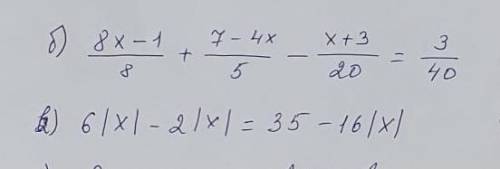 б) (8x-1)/8 + (7-4x)/5 - (x+3)/20 = 3/40
в) 6|x| - 2|x| = 35 - 16|x|